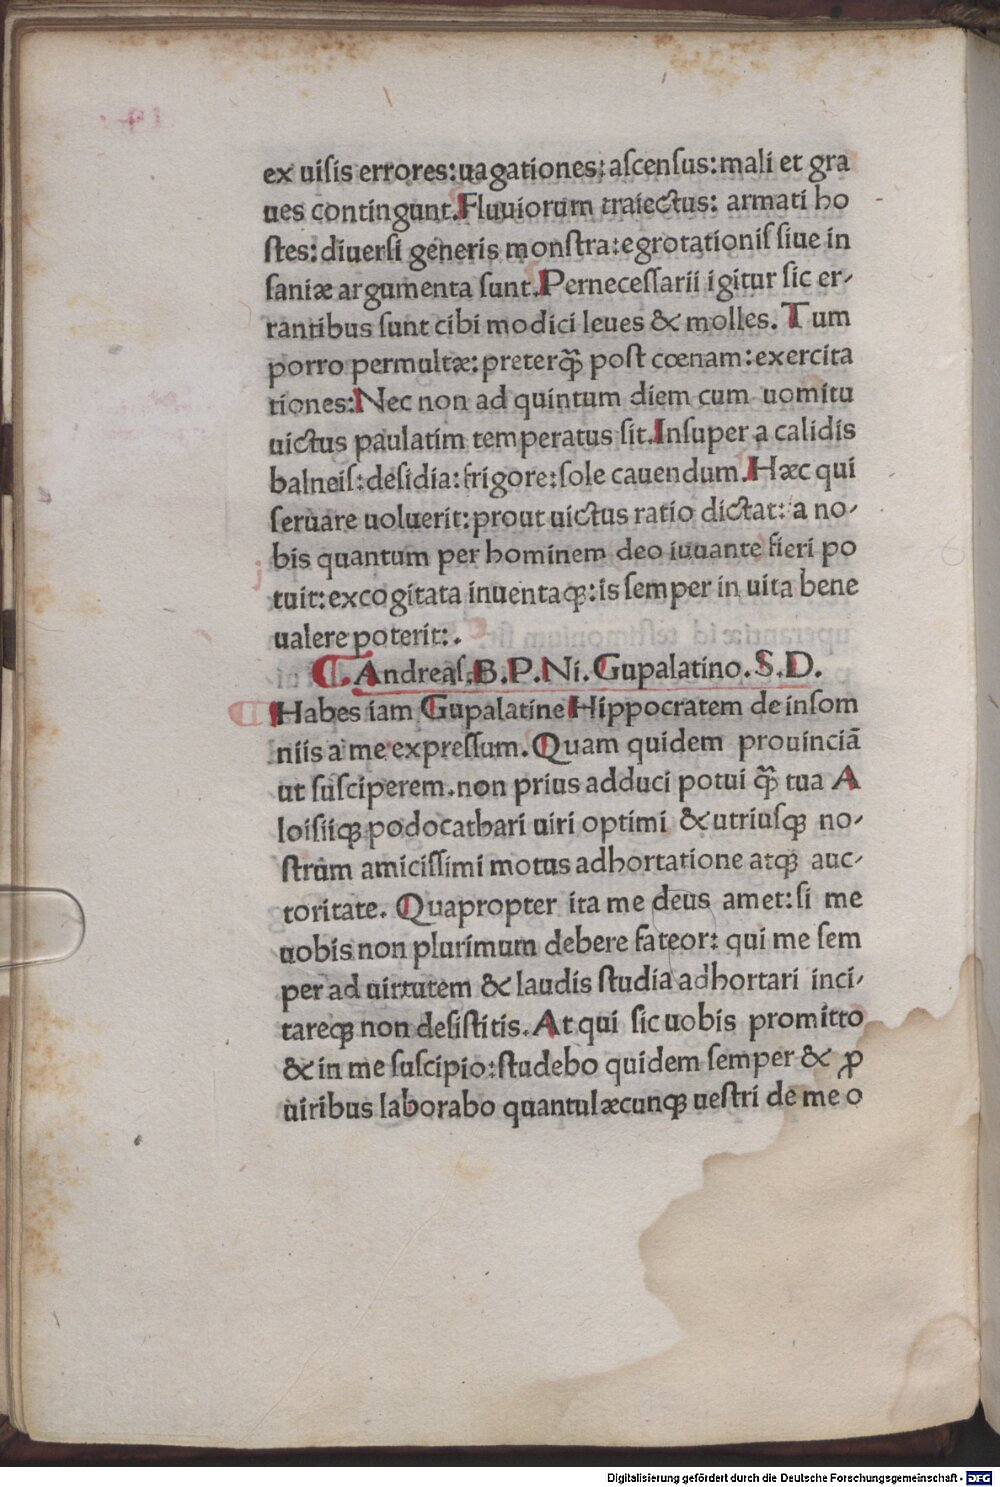 ex uisis errores: uagationes: ascensus: mali et gra
ues contingunt. Fluuiorum traiectus: armati ho
stes: diuersi generis monstra: egrotationis siue in
saniæ argumenta sunt. Pernecessarii igitur sic er-
rantibus sunt cibi modici leues & molles. Tum
porro permultæ: preterq̃ post cœnam: exercita
tiones: Nec non ad quintum diem cum uomitu
uictus paulatim temperatus sit. Insuper a calidis
balneis: desidia: frigore: sole cauendum. Hæc qui
seruare uoluerit: prout uictus ratio dictat: a no-
bis quantum per hominem deo iuuante fieri po
tuit: excogitata inuentaqꝫ: is semper in uita bene
ualere poterit: .
Andreas. B. P. Ni. Gupalatino. S. D.
Habes iam Gupalatine Hippocratem de insom
niis a me expressum. Quam quidem prouinciã
ut susciperem. non prius adduci potui q̃ tua A
loisiiqꝫ podocathari uiri optimi & utriusqꝫ no-
strum amicissimi motus adhortatione atqꝫ auc-
toritate. Quapropter ita me deus amet: si me
uobis non plurimum debere fateor: qui me sem
per ad uirtutem & laudis studia adhortari inci-
tareqꝫ non desistitis. At qui sic uobis promitto
& in me suscipio: studebo quidem semper & ꝓ
uiribus laborabo quantulæcunqꝫ uestri de me o
Digitalisierung gefördert durch die Deutsche Forschungsgemeinschaft - DFG